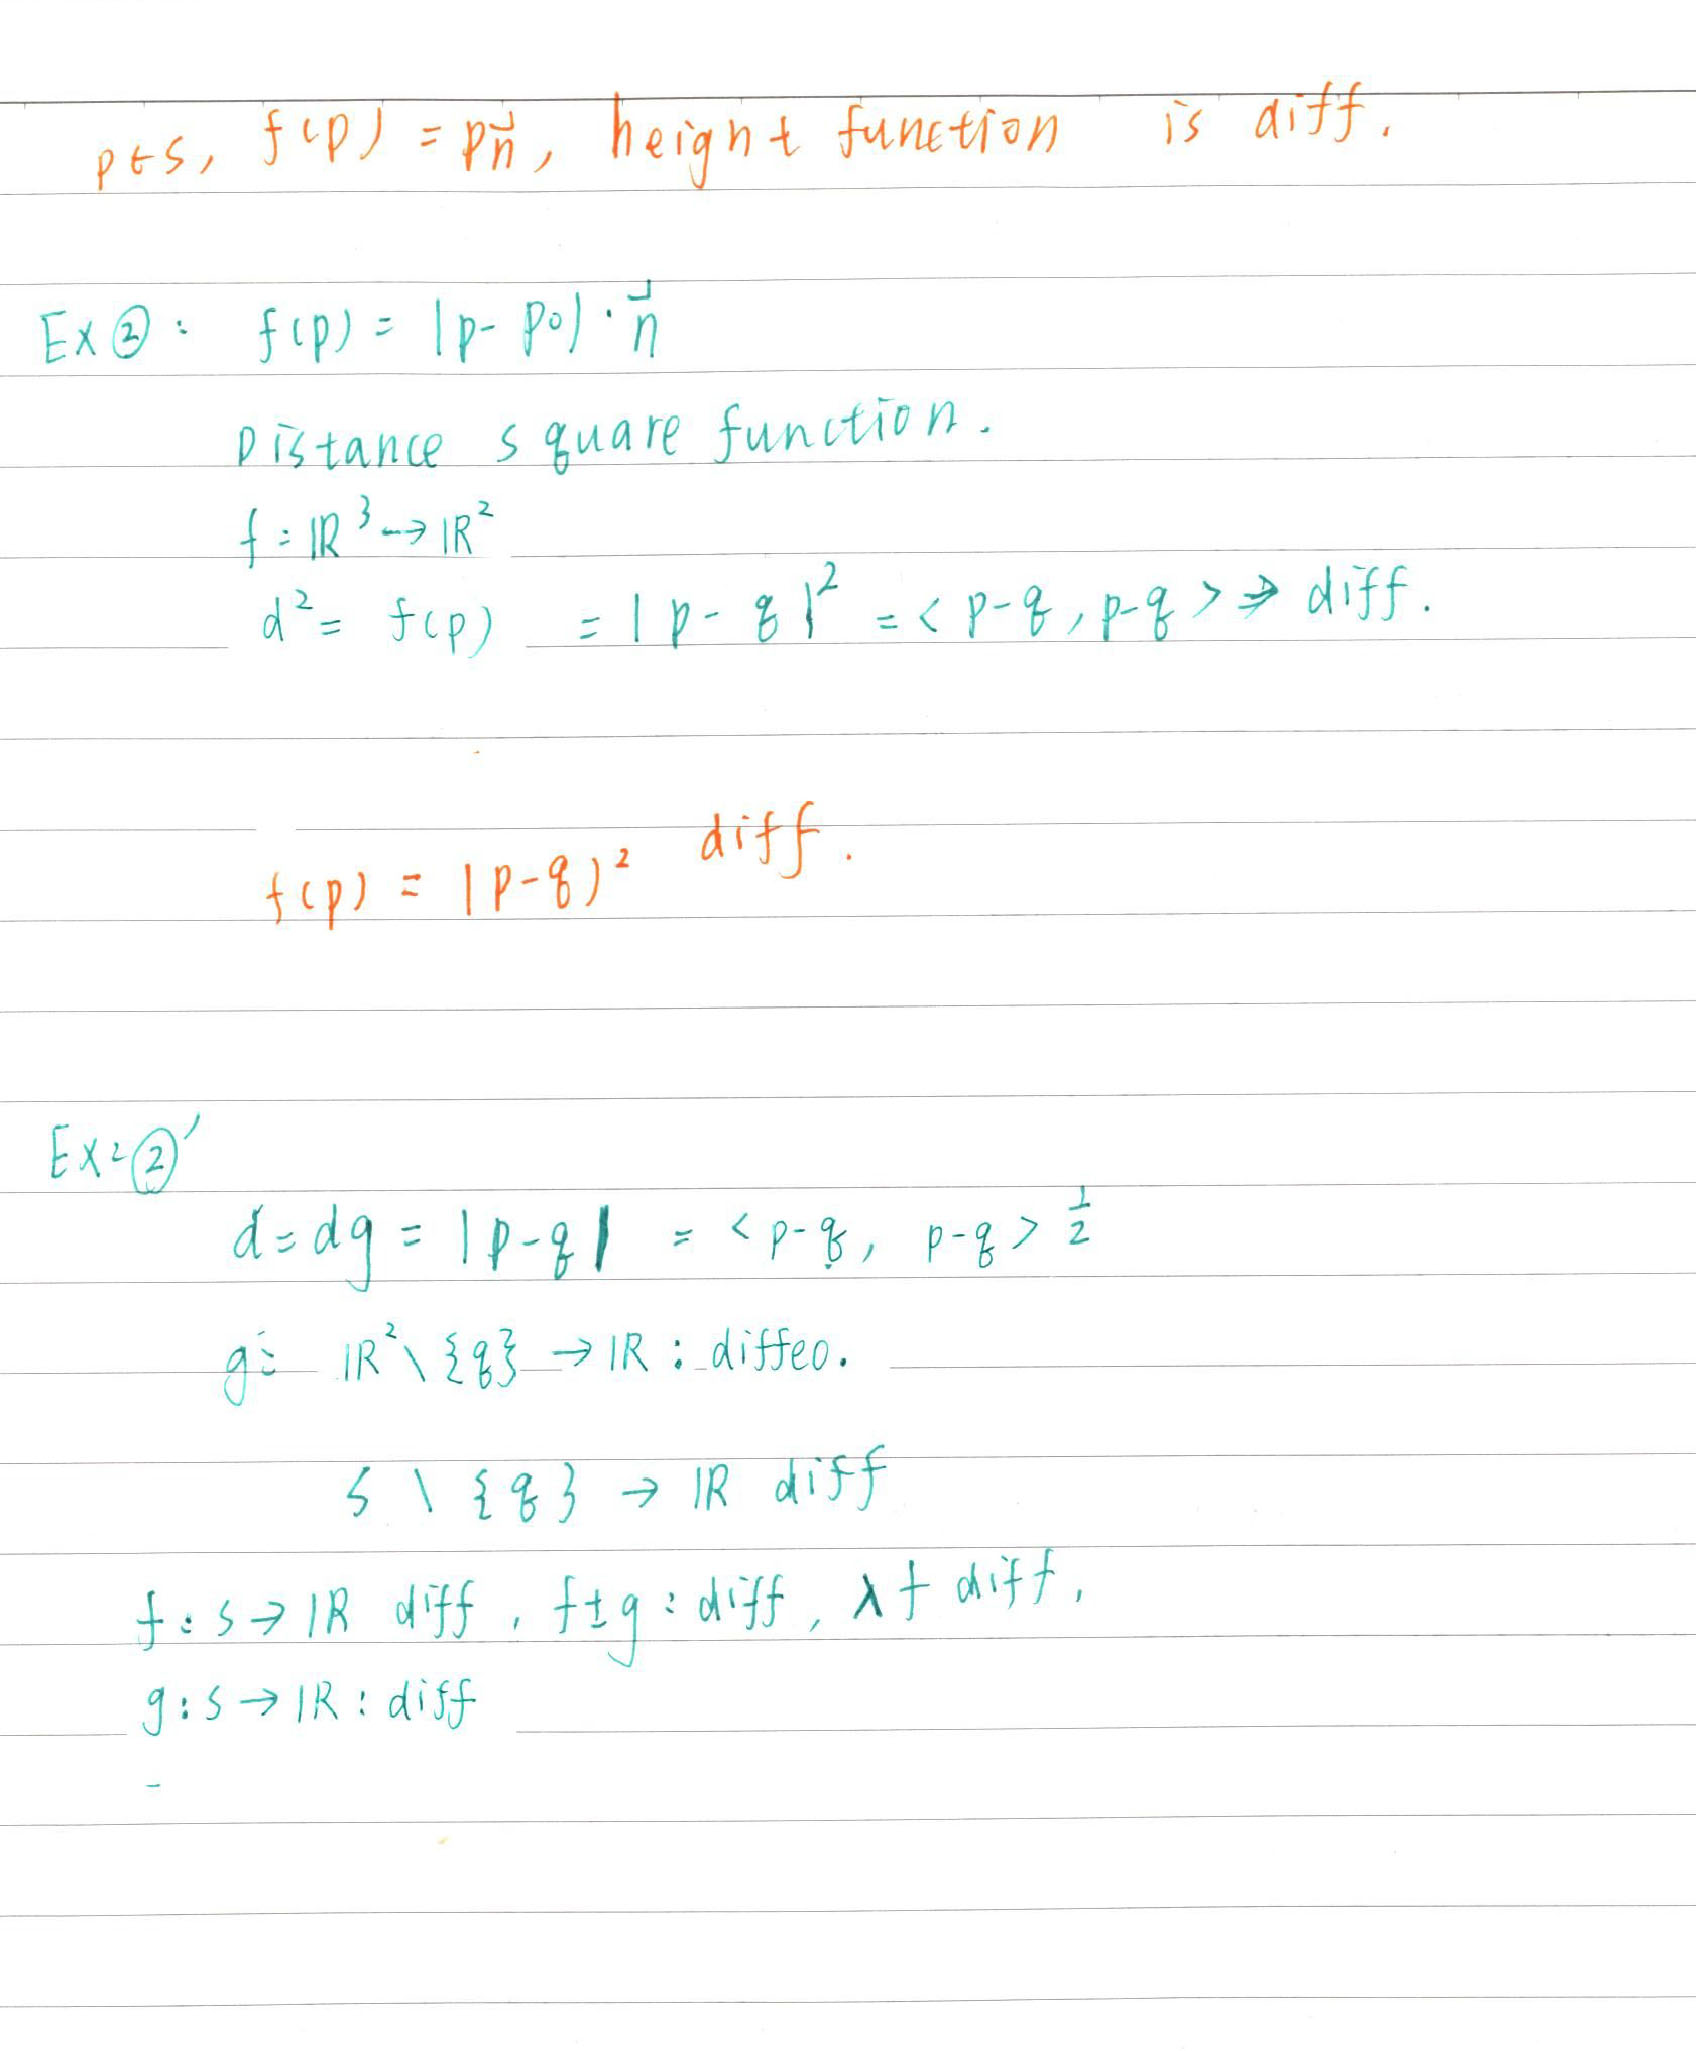 p∈S, f(p) = p\vec{n}, height function is diff.
Ex ②: f(p) = |p - p0) · \vec{n}
Distance square function.
f: ℝ³ → ℝ²
d² = f(p) = |p - q|² = <p-q, p-q> ⇒ diff.
f(p) = |p-q)² diff.
Ex: ②'
d = dq = |p-q| = <p-q, p-q>^{1/2}
g: ℝ² \ {q} → ℝ : diffeo.
S \ {q} → ℝ diff
f: S → ℝ diff, f±g: diff, λf diff,
g: S → ℝ: diff
-